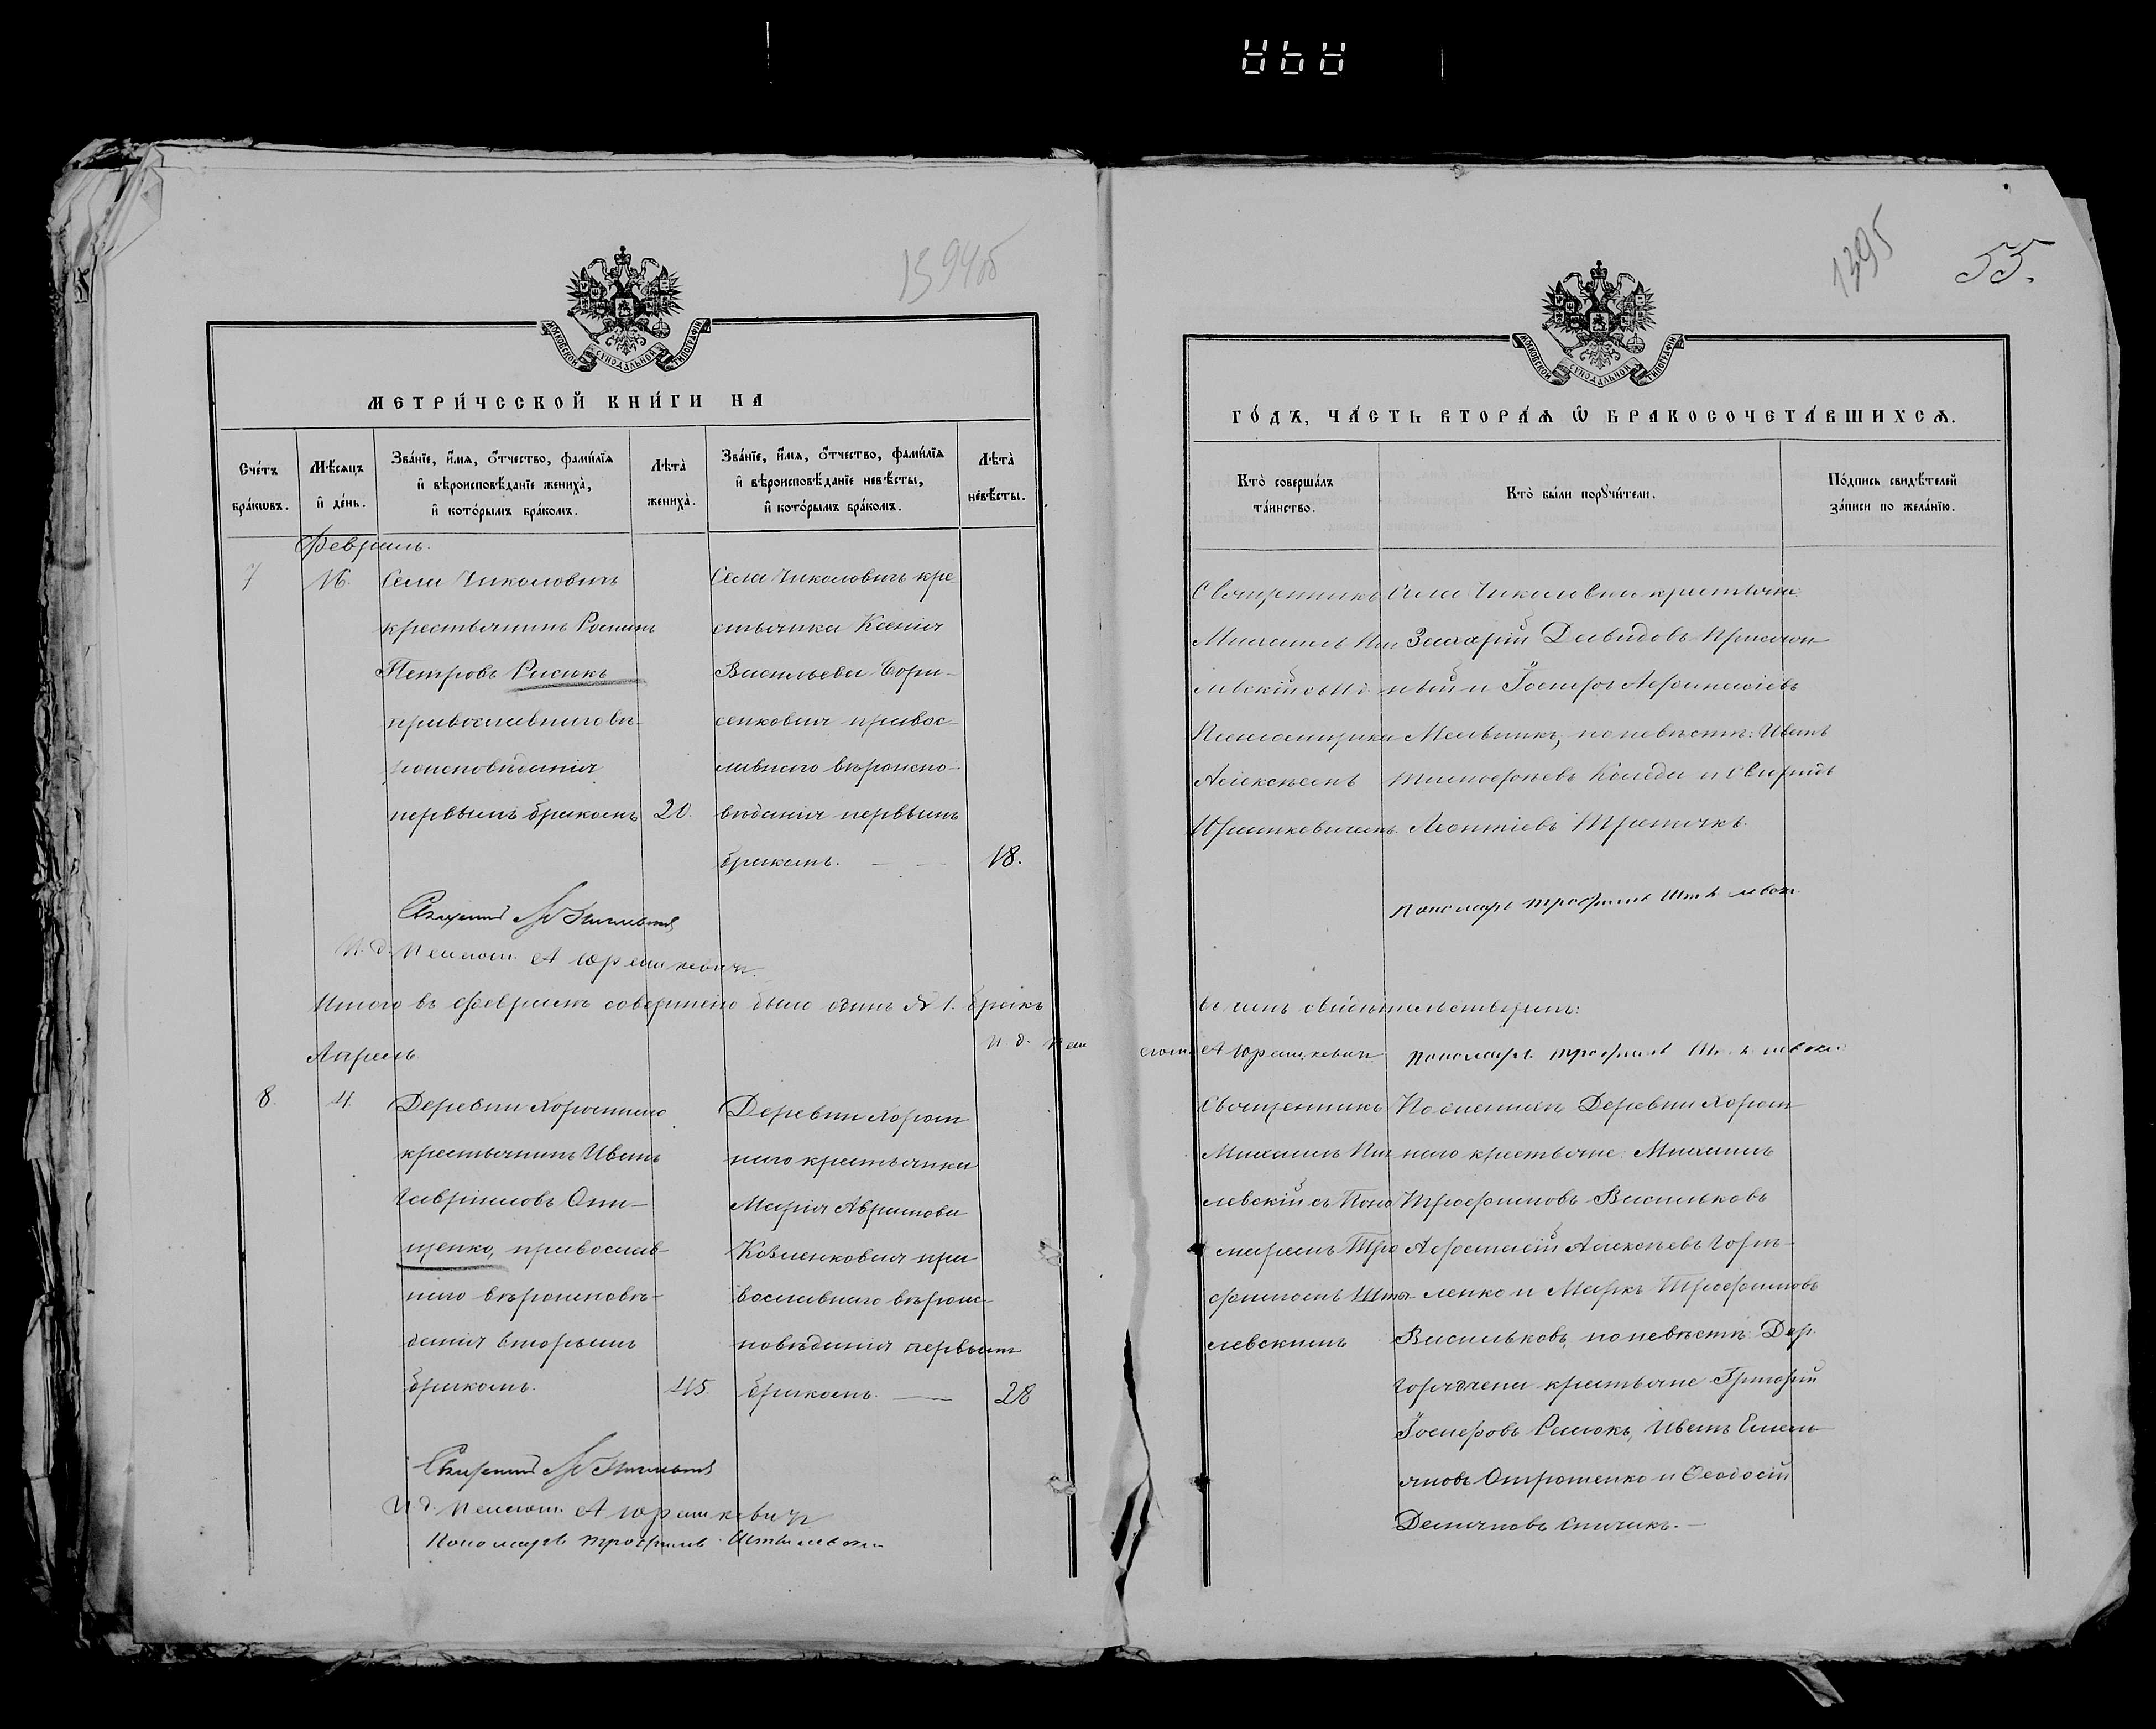 1394об
1395
55.
МОСКОВСКОЙ СѴНОДАЛЬНОЙ ТИПОГРАФІИ
МЕТРИ́ЧЕСКОЙ КНИ́ГИ НА
Сче́тъ бра́кѡвъ.
Мѣ́сяцъ и҆ де́нь.
Зва́нїе, и҆́мѧ, ѻ҆́тчество, фами́лїѧ
и҆ вѣроисповѣ́данїе жениха̀,
и҆ кото́рымъ бра́комъ.
Лѣта̀ жениха̀.
Зва́нїе, и҆́мѧ, ѻ҆́тчество, фами́лїѧ
и҆ вѣроисповѣ́данїе невѣ́сты,
и҆ кото́рымъ бра́комъ.
Лѣта̀ невѣ́сты.
Февраль.
7
16.
Села Чиколовичъ
крестьянинъ Романъ
Петровъ Расюкъ
православнаго вѣ-
роисповѣданія
первымъ бракомъ
20.
Села Чиколовичъ кре
стьянка Ксенія
Васильева Бори-
сенковна правос-
лавнаго вѣроиспо-
вѣданія первымъ
бракомъ.
18.
И. д. Псаломщ. А Юрашкевичъ.
Итого въ февралѣ совершено было одинъ № 1. бракъ
И. д. Псал
Апрель
8.
4.
Деревни Хорошаго
крестьянинъ Иванъ
Гавріиловъ Они-
щенко, православ-
наго вѣроисповѣ-
данія вторымъ
бракомъ.
45.
Деревни Хорош
наго крестьянка
Марія Аврамова
Козленковна пра
вославнаго вѣроис-
повѣданія первымъ
бракомъ.
28
И. д. Псаломщ. А Юрашкевичъ
МОСКОВСКОЙ СѴНОДАЛЬНОЙ ТИПОГРАФІИ
ГО́ДЪ, ЧА́СТЬ ВТОРА́Ѧ Ѡ҆ БРАКОСОЧЕТА́ВШИХСѦ.
Кто̀ соверша́лъ
та́инство.
Кто̀ бы́ли порꙋчи́тели.
По́дпись свидѣ́телей
за́писи по жела́нїю.
Священникъ
Михаилъ
левскій съ И. д.
Псаломщика
Алексѣемъ
Юрашкевичемъ.
Села Чиколовичи крестьяне:
Захарій Давидовъ
и Іосифъ Афанасіевъ
Мельникъ, по невѣстѣ: Иванъ
Тимофѣевъ Коляда и Свиридъ
Леонтіевъ
Пономарь Трофимъ
въ чемъ свидѣтельствуемъ:
слом. А Юрашкевичъ Пономарь Трофимъ
Священникъ
Михаилъ
левскій съ Поно
маремъ Тро
фимомъ
левскимъ
По женихѣ Деревни Хорош
наго крестьяне: Михаилъ
Трофимовъ Васильковъ
Афанасій Алексѣевъ Горѣ-
ленко и Маркъ Трофимовъ
Васильковъ, по невѣстѣ: Дер.
крестьяне Григорій
Іосифовъ Расюкъ, Иванъ Емель
яновъ Отрошенко и Ѳеодосій
Демяновъ